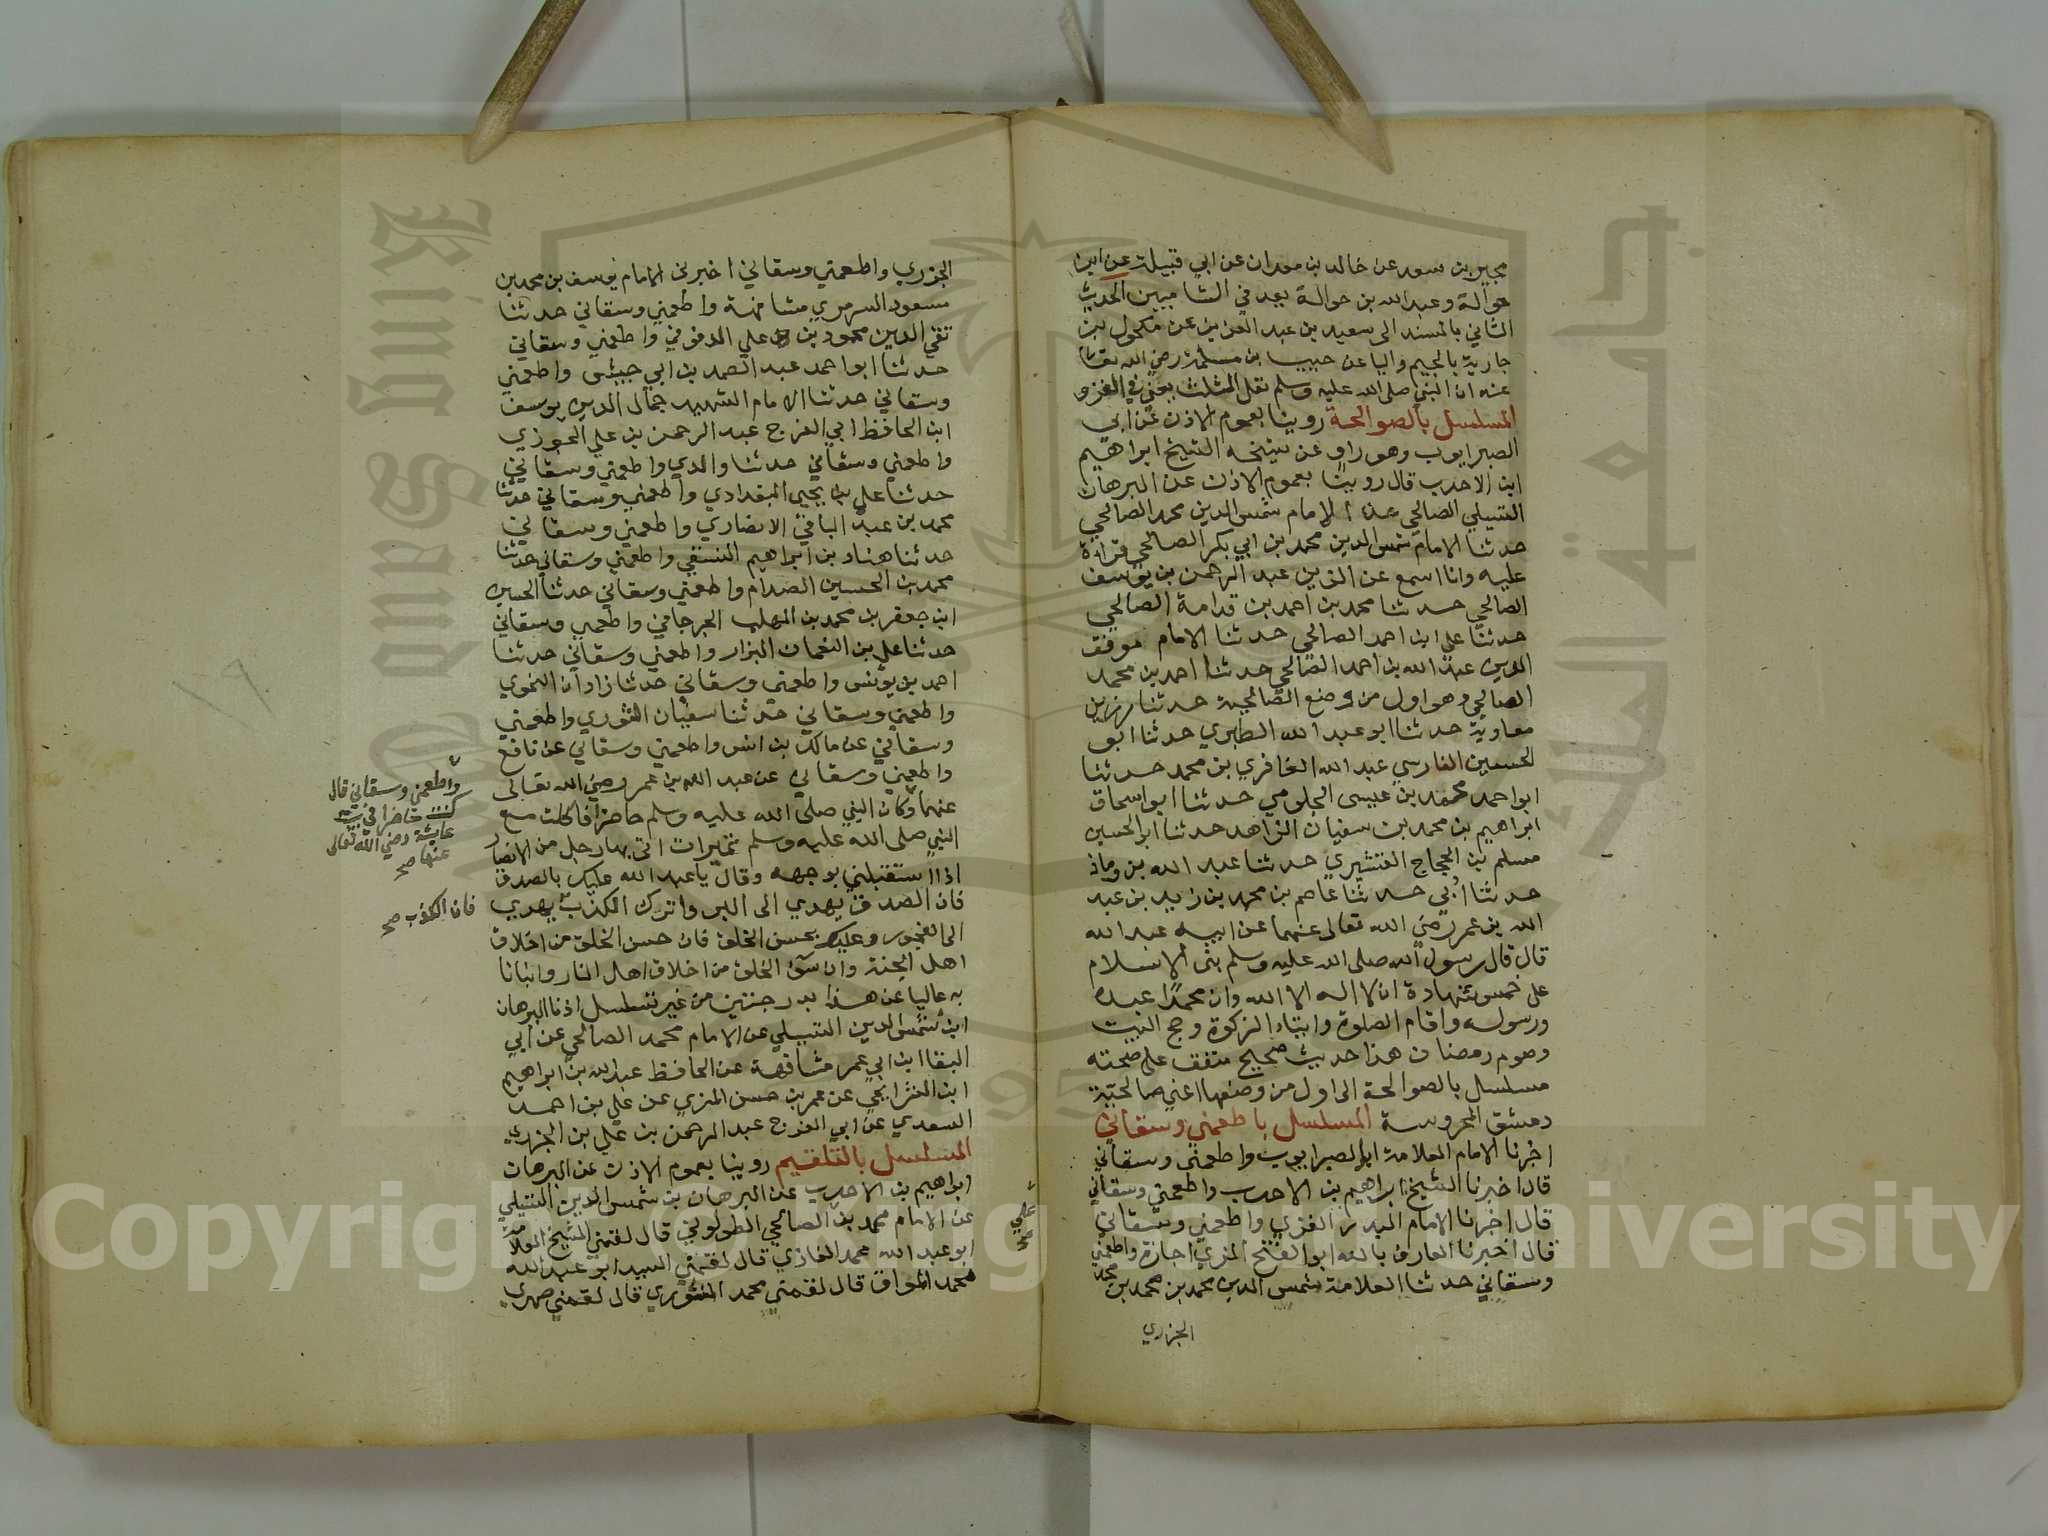 بجير بن سعد عن خالد بن معدان عن ابي قبيلة عن ابن
حوالة وعبد الله بن حوالة يعد في الشاميين الحديث
الثاني بالمسند الى سعيد بن عبد العزيز عن مكحول بن
جارية بالجيم واليا عن حبيب بن مسلمة رضي الله تعا
عنه ان النبي صلى الله عليه وسلم نفل الثلث يعني في الغزو
المسلسل بالصوالحة روينا بعموم الاذن عن ابي
الصبر ايوب وهو راو عن شيخه الشيخ ابراهيم
ابن الاحدب قال روينا بعموم الاذن عن البرهان
الشبيلي الصالحي عن الامام شمس الدين محمد الصالحي
حدثنا الامام شمس الدين محمد بن ابي بكر الصالحي قراءة
عليه وانا اسمع عن الزين عبد الرحمن بن يوسف
الصالحي حدثنا محمد بن احمد بن قدامة الصالحي
حدثنا علي ابن احمد الصالحي حدثنا الامام موفق
الدين عبد الله بن احمد الصالحي حدثنا احمد بن محمد
الصالحي وهو اول من وضع الصالحية حدثنا رزين
معاوية حدثنا ابو عبد الله الطبري حدثنا ابو
الحسين الفارسي عبد الغافري بن محمد حدثنا
ابو احمد محمد بن عيسى الجلومي حدثنا ابو اسحاق
ابراهيم بن محمد بن سفيان الزاهد حدثنا ابو الحسين
مسلم بن الحجاج القشيري حدثنا عبد الله بن وماذ
حدثنا ابي حدثنا عاصم بن محمد بن زيد بن عبد
الله بن عمر رضي الله تعالى عنهما عن ابيه عبد الله
قال قال رسول الله صلى الله عليه وسلم بني الاسلام
على خمس شهادة ان لا اله الا الله وان محمدا عبده
ورسوله واقام الصلوة وايتاء الزكوة وحج البيت
وصوم رمضان هذا حديث صحيح متفق على صحته
مسلسل بالصوالحة الى اول من وضعها اعني صالحية
دمشق المحروسة المسلسل باطعمني وسقاني
اخبرنا الامام العلامة ابو الصبر ايوب واطعمني وسقاني
قال اخبرنا الشيخ ابراهيم بن الاحدب واطعمني وسقاني
قال اخبرنا الامام البدر الغزي واطعمني وسقاني
قال اخبرنا العارف بالله ابو الفتح المزي اجازة واطعمني
وسقاني حدثنا العلامة شمس الدين محمد بن محمد بن محمد
الجزري
الجزري واطعمني وسقاني اخبرني الامام يوسف بن محمد بن
مسعود السرمري مشافهة واطعمني وسقاني حدثنا
تقي الدين محمود بن علي الدقوقي واطعمني وسقاني
حدثنا ابو احمد عبد الصمد بن ابي جيش واطعمني
وسقاني حدثنا الامام الشهيد جمال الدين يوسف
ابن الحافظ ابي الفرج عبد الرحمن بن علي الجوزي
واطعمني وسقاني حدثنا والدي واطعمني وسقاني
حدثنا علي بن يحيى البغدادي واطعمني وسقاني حدثنا
محمد بن عبد الباقي الانصاري واطعمني وسقاني
حدثنا هناد بن ابراهيم النسفي واطعمني وسقاني حدثنا
محمد بن الحسين الصدام واطعمني وسقاني حدثنا الحسين
ابن جعفر بن محمد بن المهلب الجرجاني واطعمني وسقاني
حدثنا علي بن النعمان البزار واطعمني وسقاني حدثنا
احمد بن يونس واطعمني وسقاني حدثنا زاذان النحوي
واطعمني وسقاني حدثنا سفيان الثوري واطعمني
وسقاني عن مالك بن انس واطعمني وسقاني عن نافع
واطعمني وسقاني عن عبد الله بن عمر رضي الله تعالى
عنهما وكان النبي صلى الله عليه وسلم حاضرا فاكلت مع
النبي صلى الله عليه وسلم تميرات اتى بها رجل من الانصار
اذا استقبلني بوجهه وقال يا عبد الله عليك بالصدق
فان الصدق يهدي الى البر واترك الكذب يهدي
الى الفجور وعليك بحسن الخلق فان حسن الخلق من اخلاق
اهل الجنة وان سوء الخلق من اخلاق اهل النار وانبانا
به عاليا عن هذا بدرجتين من غير تسلسل اذنا البرهان
ابن شمس الدين الشبيلي عن الامام محمد الصالحي عن ابي
البقا ابن ابي عمر مشافهة عن الحافظ عبد الله بن ابراهيم
ابن الشرايحي عن عمر بن حسن المزي عن علي بن احمد
السعدي عن ابي الفرج عبد الرحمن بن علي ابن الجزري
المسلسل بالتلقيم روينا بعموم الاذن عن البرهان
ابراهيم بن الاحدب عن البرهان بن شمس الدين الشبيلي
عن الامام محمد بن الصالحي الطولوني قال لقمني الشيخ
ابو عبد الله محمد الغازي قال لقمني السيد ابو عبد الله
محمد المواق قال لقمني محمد المنثوري قال لقمني صهري
واطعمني وسقاني قال
كنت حاضرا في بيت
عايشة رضي الله تعالى
عنها صح
فان الكذب صح
علي
صح
جامعة الملك سعود
King Saud University
1957
Copyright © King Saud University